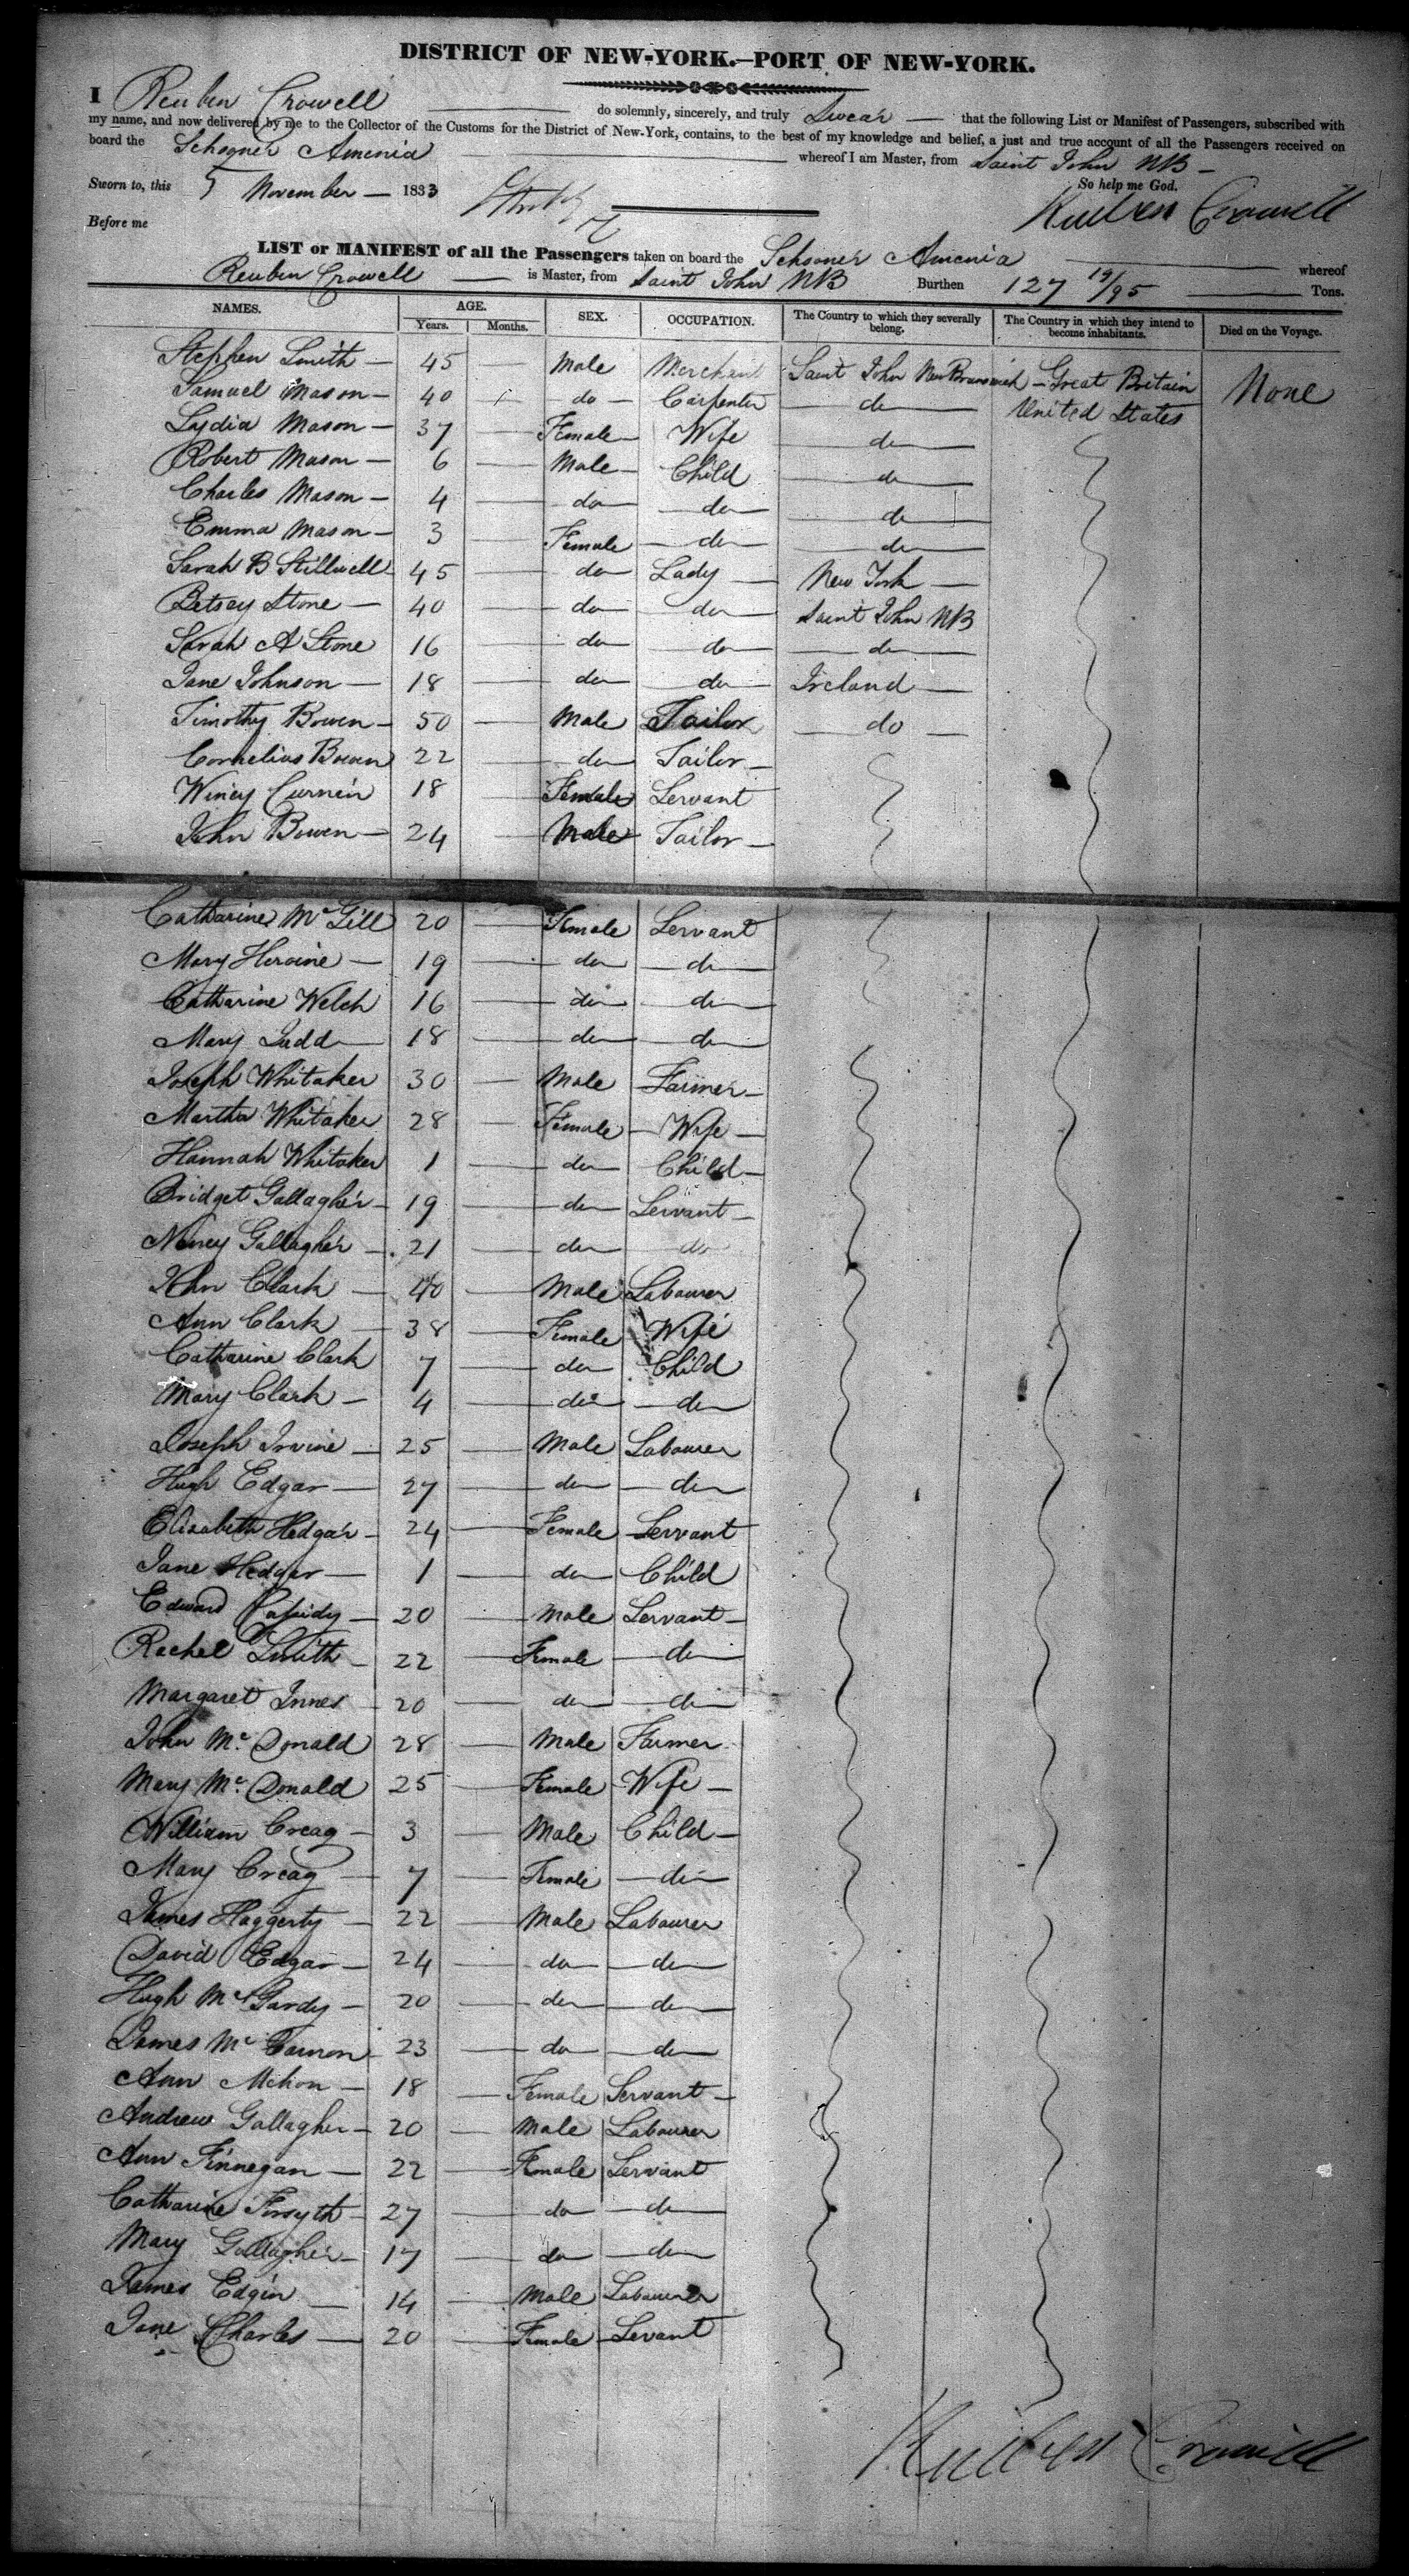 DISTRICT OF NEW-YORK.—PORT OF NEW-YORK.
I Reuben Crowell do solemnly, sincerely, and truly Swear that the following List or Manifest of Passengers, subscribed with
my name, and now delivered by me to the Collector of the Customs for the District of New-York, contains, to the best of my knowledge and belief, a just and true account of all the Passengers received on
board the Schooner Amenia whereof I am Master, from Saint John NB
Sworn to, this 5 November 1833 So help me God.
Before me Reuben Crowell
LIST or MANIFEST of all the Passengers taken on board the Schooner Amenia whereof
Reuben Crowell is Master, from Saint John NB Burthen 127 19/95 Tons.
NAMES. AGE. Years. Months. SEX. OCCUPATION. The Country to which they severally belong. The Country in which they intend to become inhabitants. Died on the Voyage.
Stephen Smith 45 Male Merchant Saint John New Brunswick Great Britain None
Samuel Mason 40 do Carpenter do United States
Lydia Mason 37 Female Wife do
Robert Mason 6 Male Child do
Charles Mason 4 do do do
Emma Mason 3 Female do do
Sarah B Stillwell 45 do Lady New York
Betsey Stone 40 do do Saint John NB
Sarah A Stone 16 do do do
Jane Johnson 18 do do Ireland
Timothy Bowen 50 Male Tailor do
Cornelius Bowen 22 do Tailor
Winey Curnein 18 Female Servant
John Bowen 24 Male Tailor
Catharine McGill 20 Female Servant
Mary Heroine 19 do do
Catharine Welch 16 do do
Mary Ludd 18 do do
Joseph Whitaker 30 Male Farmer
Martha Whitaker 28 Female Wife
Hannah Whitaker 1 do Child
Bridget Gallagher 19 do Servant
Nancy Gallagher 21 do do
John Clark 40 Male Labourer
Ann Clark 38 Female Wife
Catharine Clark 7 do Child
Mary Clark 4 do do
Joseph Irvine 25 Male Labourer
Hugh Edgar 27 do do
Elisabeth Hedgar 24 Female Servant
Jane Hedgar 1 do Child
Edward Cassidy 20 Male Servant
Rachel Smith 22 Female do
Margaret Innes 20 do do
John Mc Donald 28 Male Farmer
Mary Mc Donald 25 Female Wife
William Creag 3 Male Child
Mary Creag 7 Female do
James Haggerty 22 Male Labourer
David Edgar 24 do do
Hugh Mc Gardy 20 do do
James Mc Carnon 23 do do
Ann Mehon 18 Female Servant
Andrew Gallagher 20 Male Labourer
Ann Finnegan 22 Female Servant
Catharine Forsyth 27 do do
Mary Gallagher 17 do do
James Edgin 14 Male Labourer
Jane Charles 20 Female Sevant
Reuben Crowell